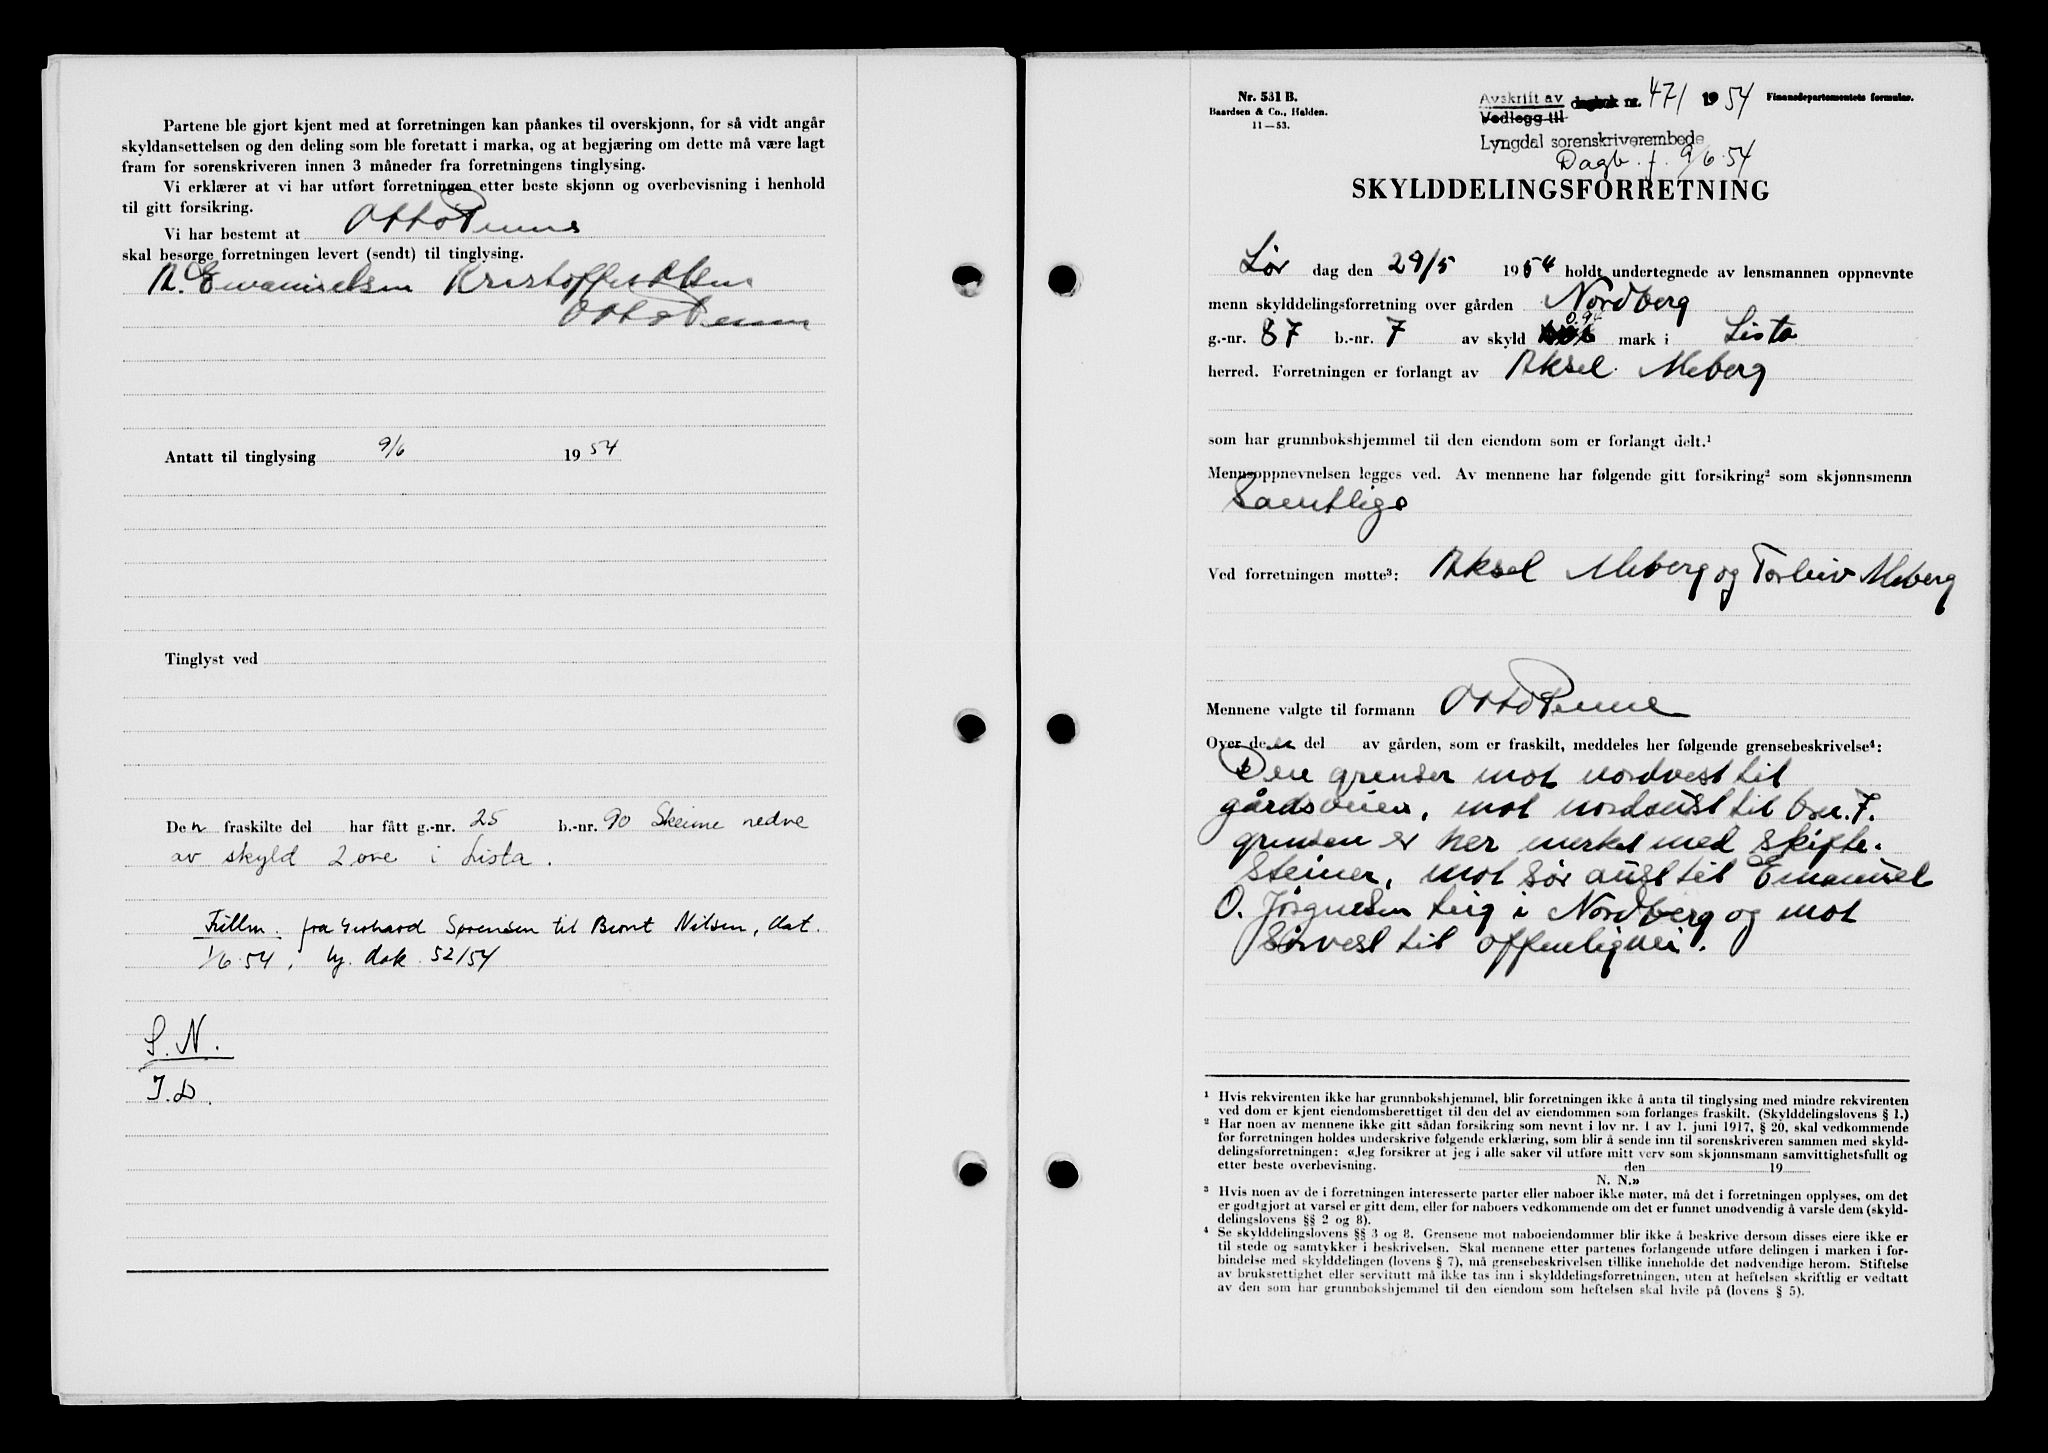 Partene ble gjort kjent med at forretningen kan påankes til overskjønn, for så vidt angår
skyldansettelsen og den deling som ble foretatt i marka, og at begjæring om dette må være lagt
fram for sorenskriveren innen 3 måneder fra forretningens tinglysing.
Vi erklærer at vi har utført forretningen etter beste skjønn og overbevisning i henhold
til gitt forsikring.
Vi har bestemt at Otto Penne
skal besørge forretningen levert (sendt) til tinglysing.
A. Emanuelsen Kristoffer Olsen
Otto Penne
Antatt til tinglysing 9/6 1954
Tinglyst ved
Den fraskilte del har fått g.-nr. 25 b.-nr. 90 Skeime nedre
av skyld 2 øre i Lista.
Fullm. fra Gerhard Sørensen til Bernt Nilsen, dat.
1/6 54, ly. dok. 52/54
S. N.
J. D.
Nr. 531 B.
Baardsen & Co., Halden.
11—53.
Avskrift av dagbok nr. 471 1954 Finansdepartementets formular.
Vedlegg til
Lyngdal sorenskriverembede
Dagb. f. 9/6 54
SKYLDDELINGSFORRETNING
Lør dag den 29/5 1954 holdt undertegnede av lensmannen oppnevnte
menn skylddelingsforretning over gården Nordberg
g.-nr. 87 b.-nr. 7 av skyld 0.94 mark i Lista
herred. Forretningen er forlangt av Aksel Meberg
som har grunnbokshjemmel til den eiendom som er forlangt delt.¹
Mennsoppnevnelsen legges ved. Av mennene har følgende gitt forsikring² som skjønnsmenn
Samtlige
Ved forretningen møtte³: Aksel Meberg og Torleiv Meberg
Mennene valgte til formann Otto Penne
Over den del av gården, som er fraskilt, meddeles her følgende grensebeskrivelse⁴:
Den grenser mot nordvest til
gårdsveien, mot nordaust til bnr. 7.
grensen er her merket med skifte-
steiner, mot sør aust til Emanuel
O. Jørgensen teig i Nordberg og mot
sørvest til offenlig vei.
¹ Hvis rekvirenten ikke har grunnbokshjemmel, blir forretningen ikke å anta til tinglysing med mindre rekvirenten
ved dom er kjent eiendomsberettiget til den del av eiendommen som forlanges fraskilt. (Skylddelingslovens § 1.)
² Har noen av mennene ikke gitt sådan forsikring som nevnt i lov nr. 1 av 1. juni 1917, § 20, skal vedkommende
før forretningen holdes underskrive følgende erklæring, som blir å sende inn til sorenskriveren sammen med skyld-
delingsforretningen: «Jeg forsikrer at jeg i alle saker vil utføre mitt verv som skjønnsmann samvittighetsfullt og
etter beste overbevisning. den 19
N. N.»
³ Hvis noen av de i forretningen interesserte parter eller naboer ikke møter, må det i forretningen opplyses, om det
er godtgjort at varsel er gitt dem, eller for naboers vedkommende om det er funnet unødvendig å varsle dem (skyld-
delingslovens §§ 2 og 8).
⁴ Se skylddelingslovens §§ 3 og 8. Grensene mot naboeiendommer blir ikke å beskrive dersom disses eiere ikke er
til stede og samtykker i beskrivelsen. Skal mennene etter partenes forlangende utføre delingen i marken i for-
bindelse med skylddelingen (lovens § 7), må grensebeskrivelsen tillike inneholde det nødvendige herom. Stiftelse
av bruksrettighet eller servitutt må ikke tas inn i skylddelingsforretningen, uten at heftelsen skriftlig er vedtatt
av den som har grunnbokshjemmel til den eiendom som heftelsen skal hvile på (lovens § 5).